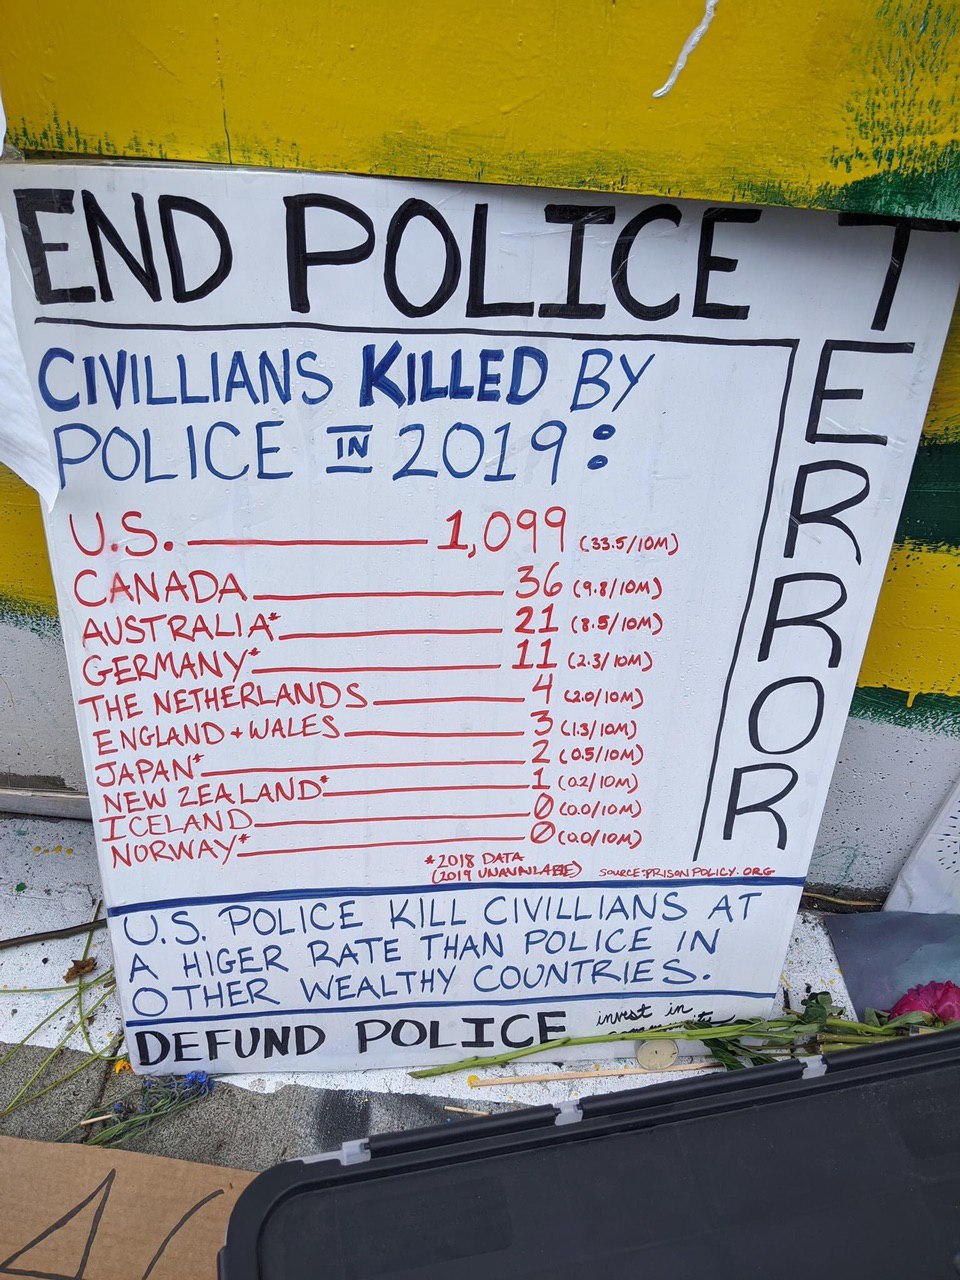 END POLICE TERROR
CIVILLIANS KILLED BY
POLICE IN 2019:
U.S. 1,099 (33.5/10M)
CANADA 36 (9.8/10M)
AUSTRALIA* 21 (8.5/10M)
GERMANY* 11 (2.3/10M)
THE NETHERLANDS 4 (2.0/10M)
ENGLAND + WALES 3 (1.3/10M)
JAPAN* 2 (0.5/10M)
NEW ZEALAND* 1 (0.2/10M)
ICELAND 0 (0.0/10M)
NORWAY* 0 (0.0/10M)
*2018 DATA
(2019 UNAVAILABLE) SOURCE: PRISONPOLICY.ORG
U.S. POLICE KILL CIVILLIANS AT
A HIGER RATE THAN POLICE IN
OTHER WEALTHY COUNTRIES.
DEFUND POLICE invest in